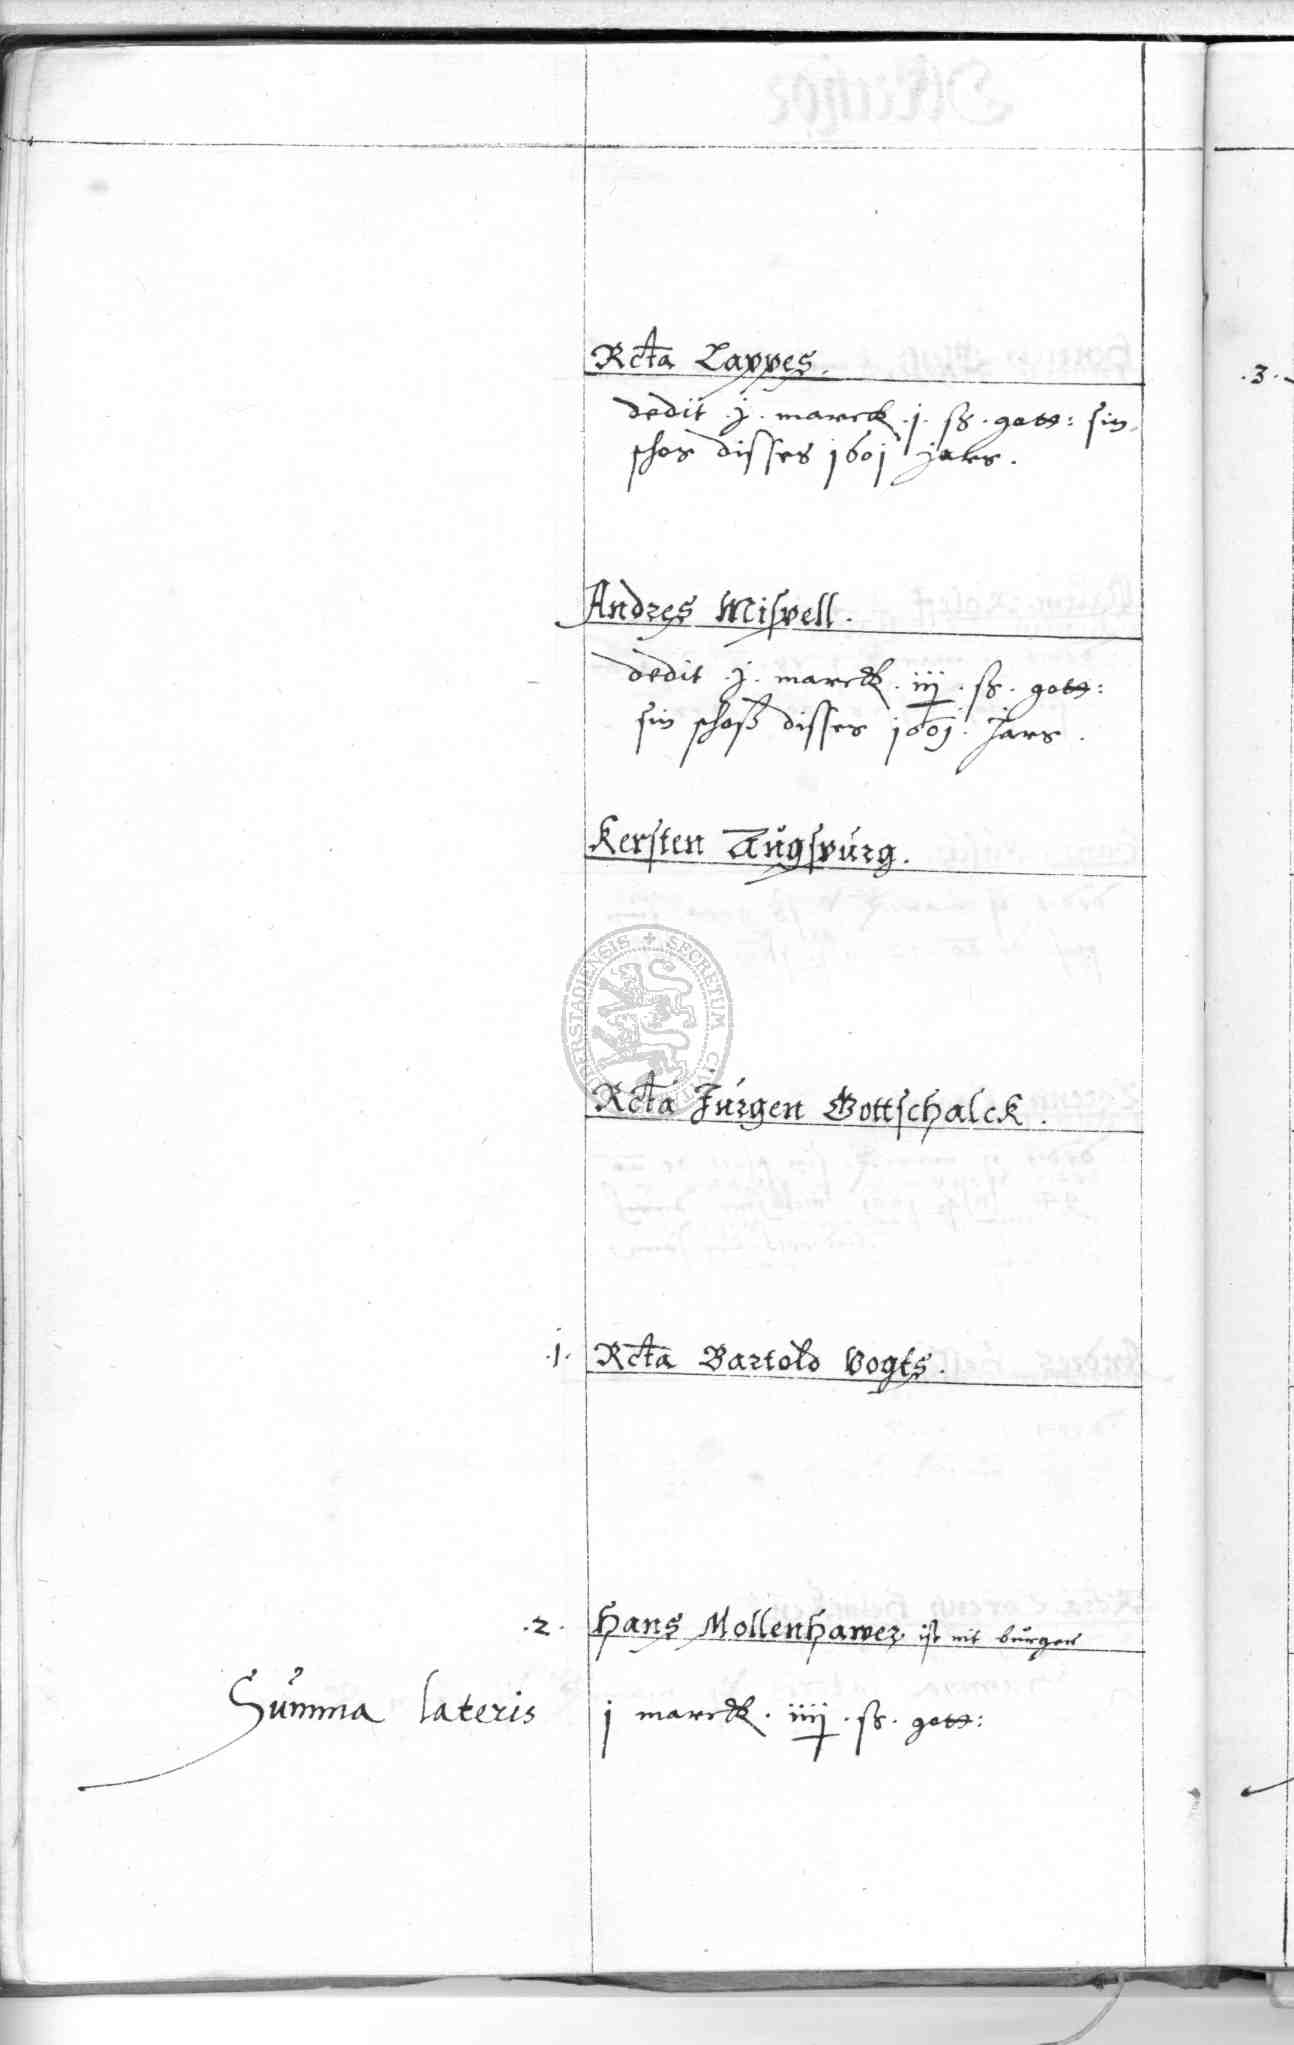 Rcta Lappes.
dedit .j. marck .j. ß. gott: sin
schos disses 1601 jars.
Andres Mispell.
dedit .j. marck. iij. ß. gott:
sin schoß disses 1601. Jars.
Kersten Augspurg.
SECRETUM CIV
DUDERSTADIENSIS
Rcta Jurgen Gottschalck.
.1. Rcta Bartold Vogts.
.2. Hans Mollenhawer. ist nit burger
Summa lateris j marck. iiij. ß. gott:
.3.